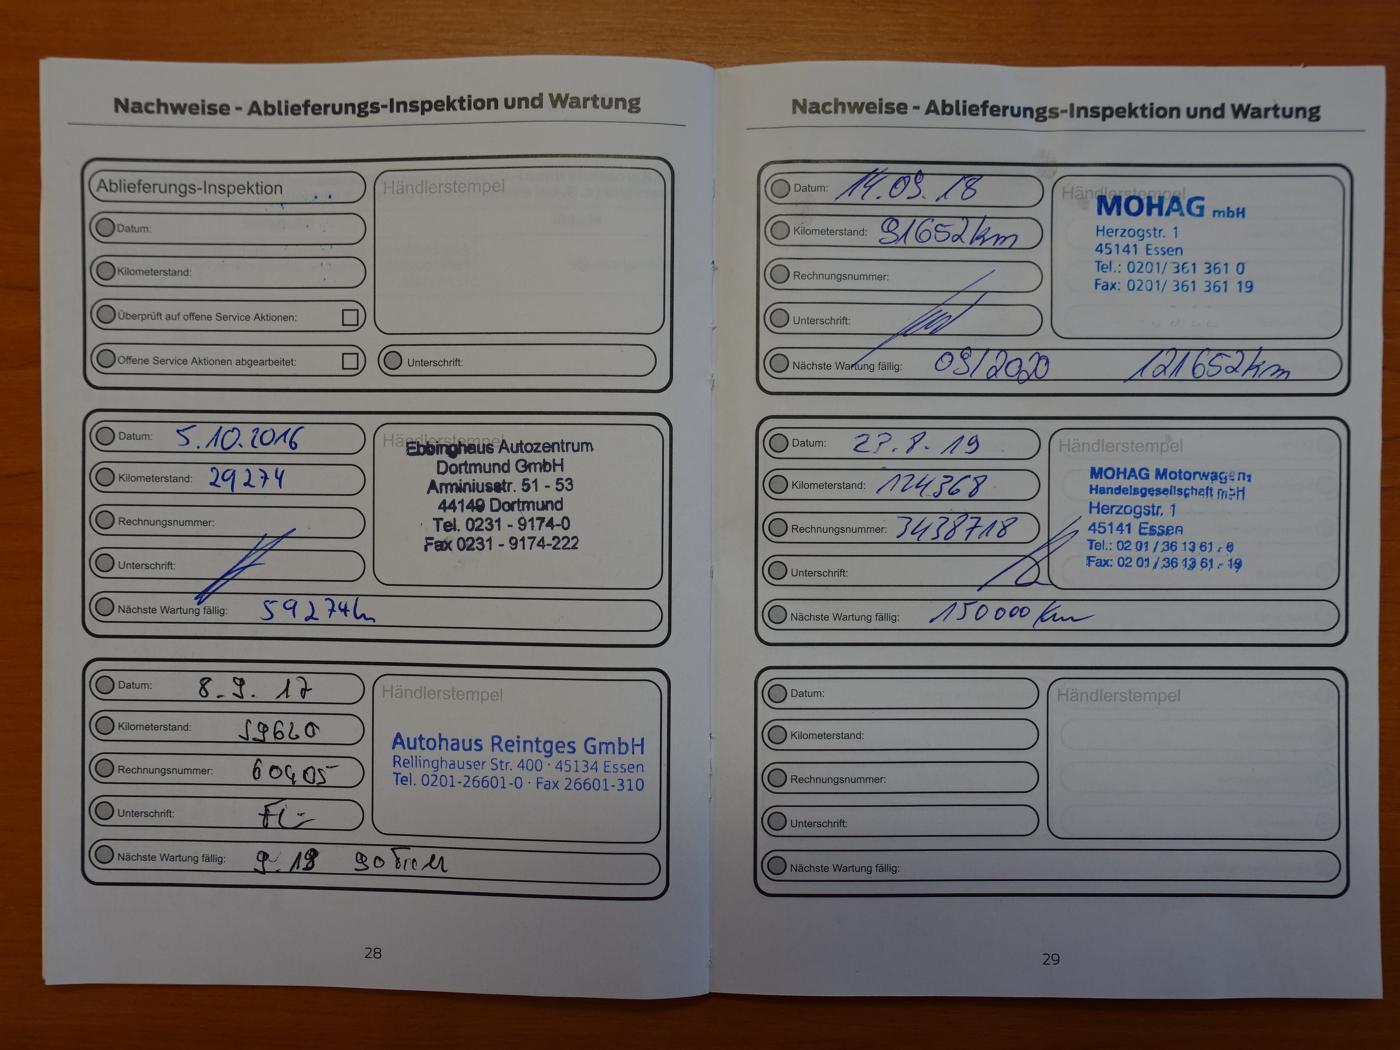 Nachweise - Ablieferungs-Inspektion und Wartung
Ablieferungs-Inspektion
Händlerstempel
Datum:
Kilometerstand:
Überprüft auf offene Service Aktionen:
Offene Service Aktionen abgearbeitet:
Unterschrift:
Datum: 5.10.2016
Kilometerstand: 29274
Rechnungsnummer:
Unterschrift:
Nächste Wartung fällig: 59274km
Händlerstempel
Ebbinghaus Autozentrum
Dortmund GmbH
Arminiusstr. 51 - 53
44149 Dortmund
Tel. 0231 - 9174-0
Fax 0231 - 9174-222
Datum: 8.9.17
Kilometerstand: 59620
Rechnungsnummer: 60405
Unterschrift:
Nächste Wartung fällig: 9.18
Händlerstempel
Autohaus Reintges GmbH
Rellinghauser Str. 400 · 45134 Essen
Tel. 0201-26601-0 · Fax 26601-310
28
Nachweise - Ablieferungs-Inspektion und Wartung
Datum: 14.09.18
Kilometerstand: 91652km
Rechnungsnummer:
Unterschrift:
Nächste Wartung fällig: 09/2020 121652km
Händlerstempel
MOHAG mbH
Herzogstr. 1
45141 Essen
Tel.: 0201/ 361 361 0
Fax: 0201/ 361 361 19
Datum: 27.8.19
Kilometerstand: 124368
Rechnungsnummer: 3438718
Unterschrift:
Nächste Wartung fällig: 150000km
Händlerstempel
MOHAG Motorwagen-
Handelsgesellschaft mbH
Herzogstr. 1
45141 Essen
Tel.: 02 01 / 36 13 61 - 0
Fax: 02 01 / 36 13 61 - 19
Datum:
Kilometerstand:
Rechnungsnummer:
Unterschrift:
Nächste Wartung fällig:
Händlerstempel
29